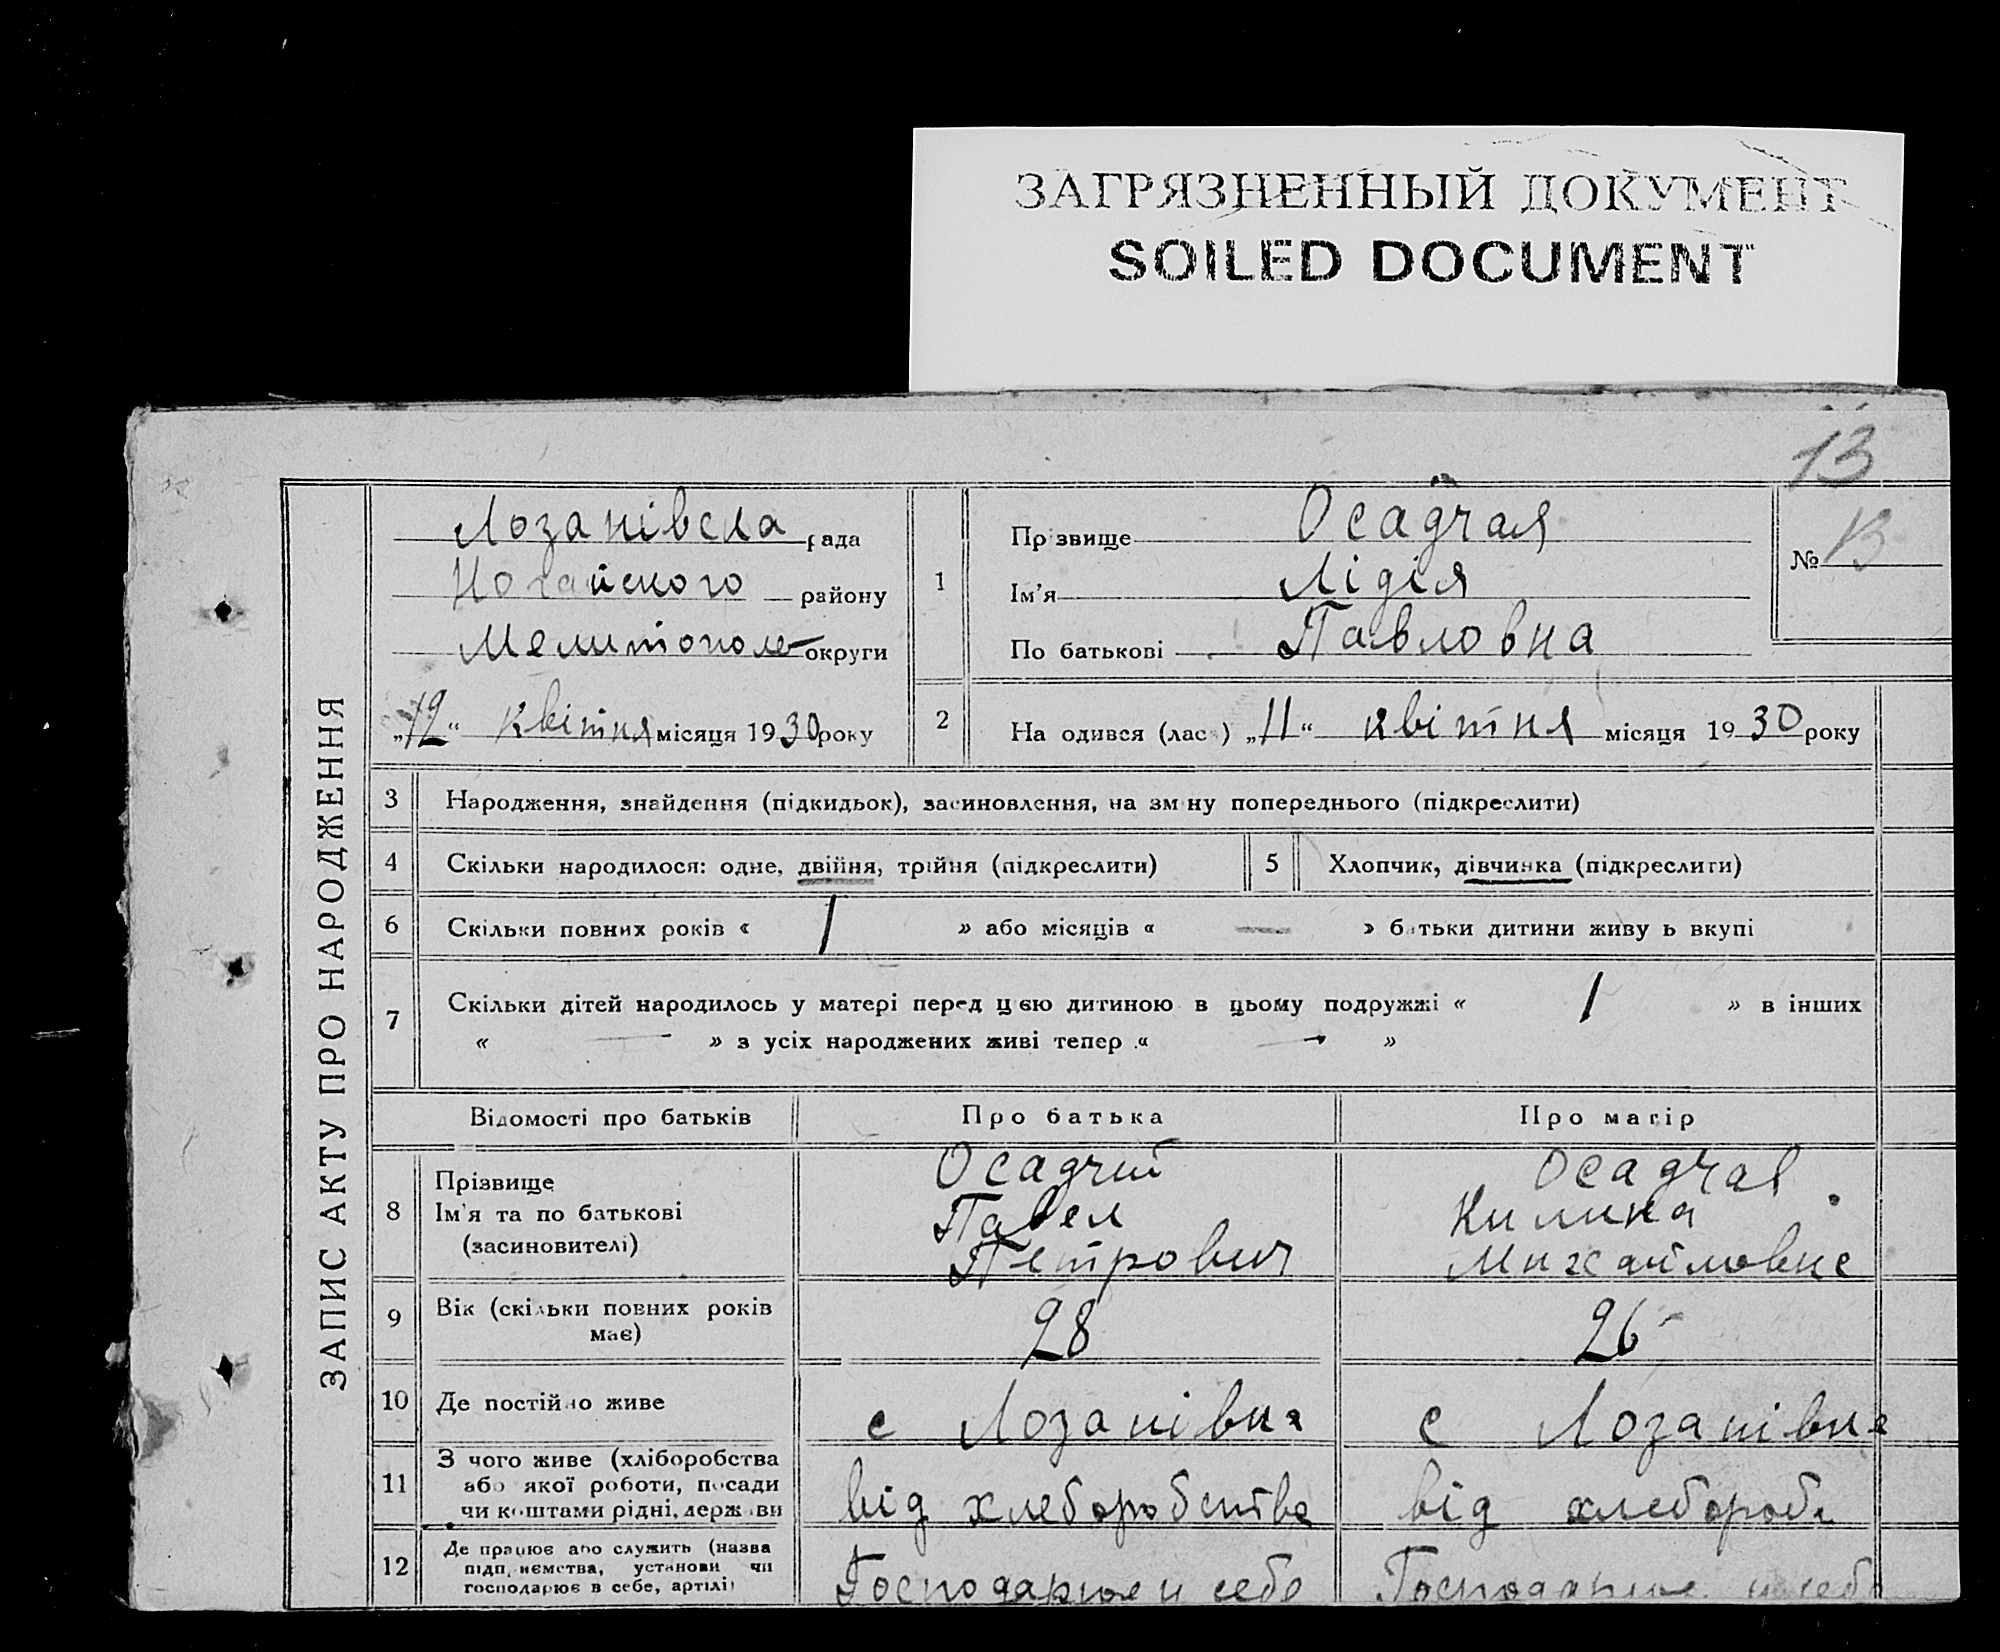 ЗАГРЯЗНЕННЫЙ ДОКУМЕНТ
SOILED DOCUMENT
13
ЗАПИС АКТУ ПРО НАРОДЖЕННЯ
Лозанівска рада
Ногайского району
Мелитополь округи
„12“ квітня місяця 1930 року
1
Прізвище Осадчая
Ім'я Лідія
По батькові Павловна
№ 13
2
На одився (лас ) „11“ квітня місяця 1930 року
3 Народження, знайдення (підкидьок), засиновлення, на зміну попереднього (підкреслити)
4 Скільки народилося: одне, двійня, трійня (підкреслити)
5 Хлопчик, дівчинка (підкреслити)
6 Скільки повних років « 1 » або місяців « — » батьки дитини живу ь вкупі
7 Скільки дітей народилось у матері перед цією дитиною в цьому подружжі « 1 » в інших
« — » з усіх народжених живі тепер « — »
Відомості про батьків Про батька Про матір
8 Прізвище Осадчий Осадчая
Ім'я та по батькові Павел Килина
(засиновителі) Петрович Михайловне
9 Вік (скільки повних років має) 28 26
10 Де постійно живе с Лозанівка с Лозанівка
11 З чого живе (хліборобства
або якої роботи, посади
чи коштами рідні, держави від хлеборобства від хлебороб
12 Де працює або служить (назва
підприємства, установи чи
господарює в себе, артілі) Господарюе и себе Господарюе и себе